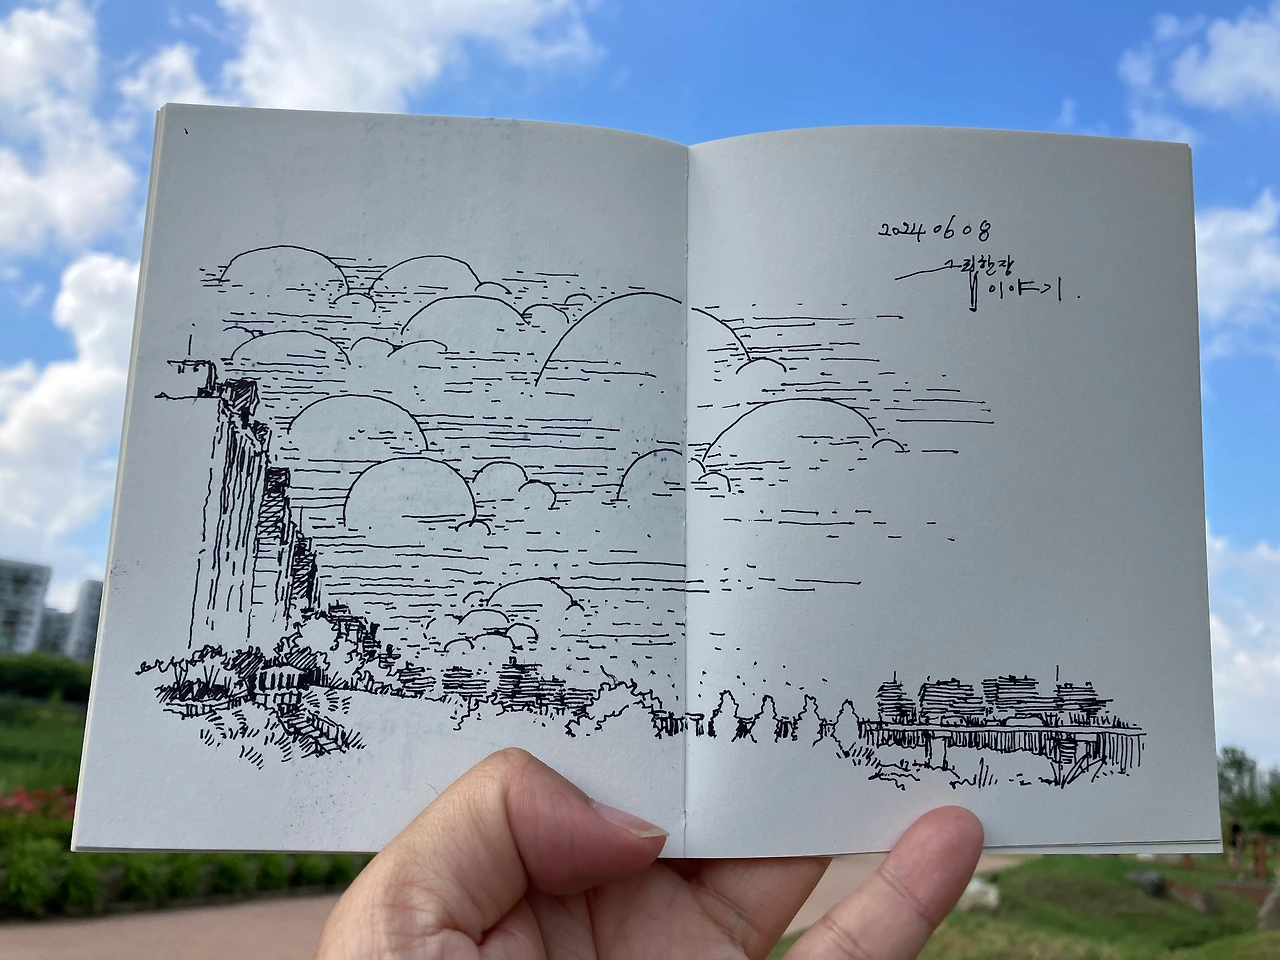 2024 06 08
그림한장
이야기.